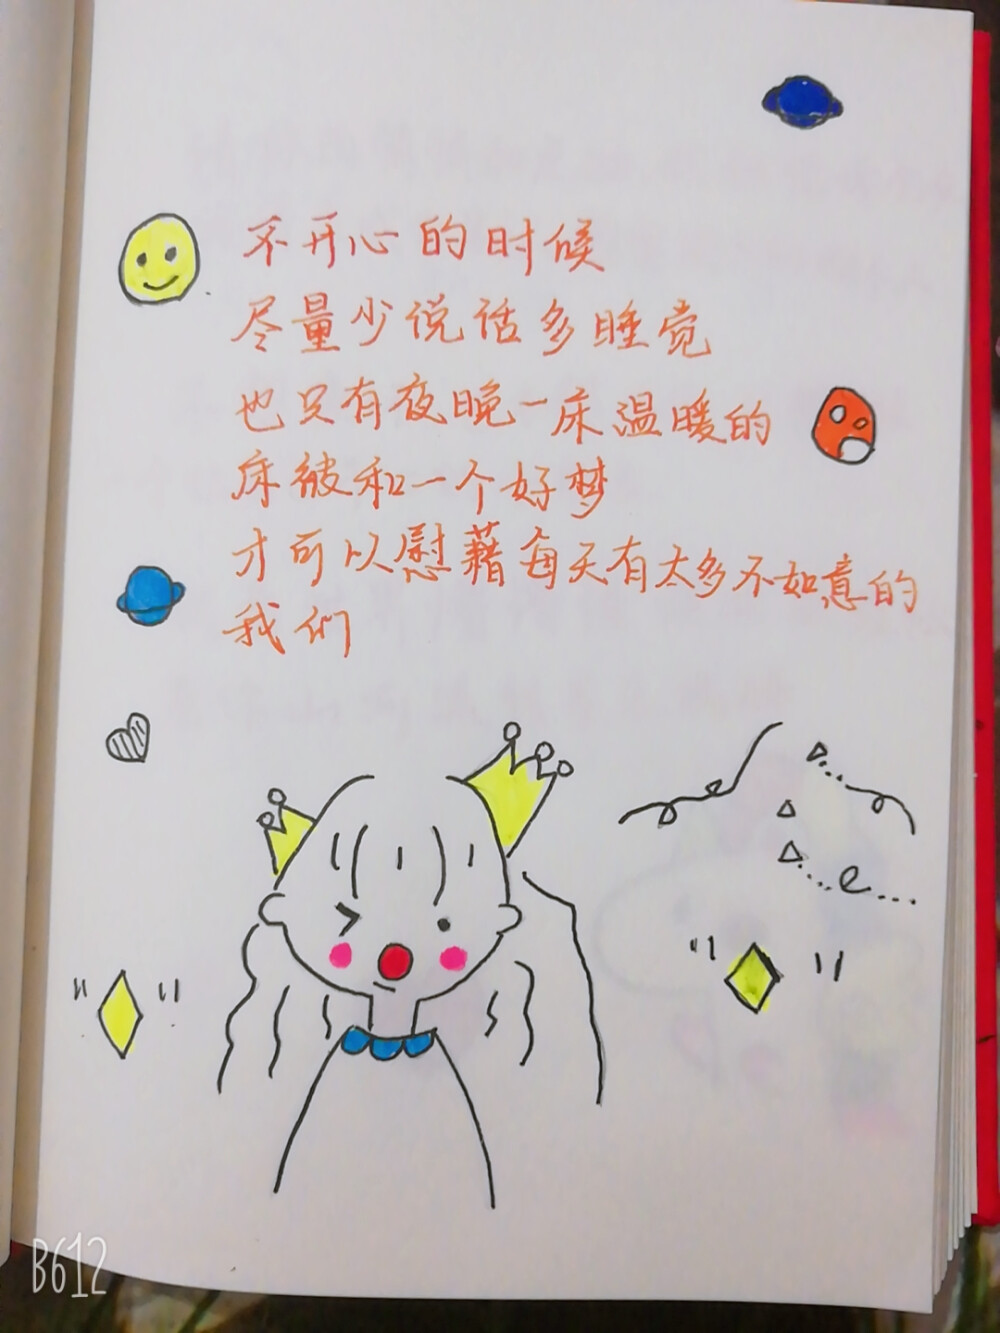 不开心的时候
尽量少说话多睡觉
也只有夜晚一床温暖的
床被和一个好梦
才可以慰藉每天有太多不如意的
我们
B612